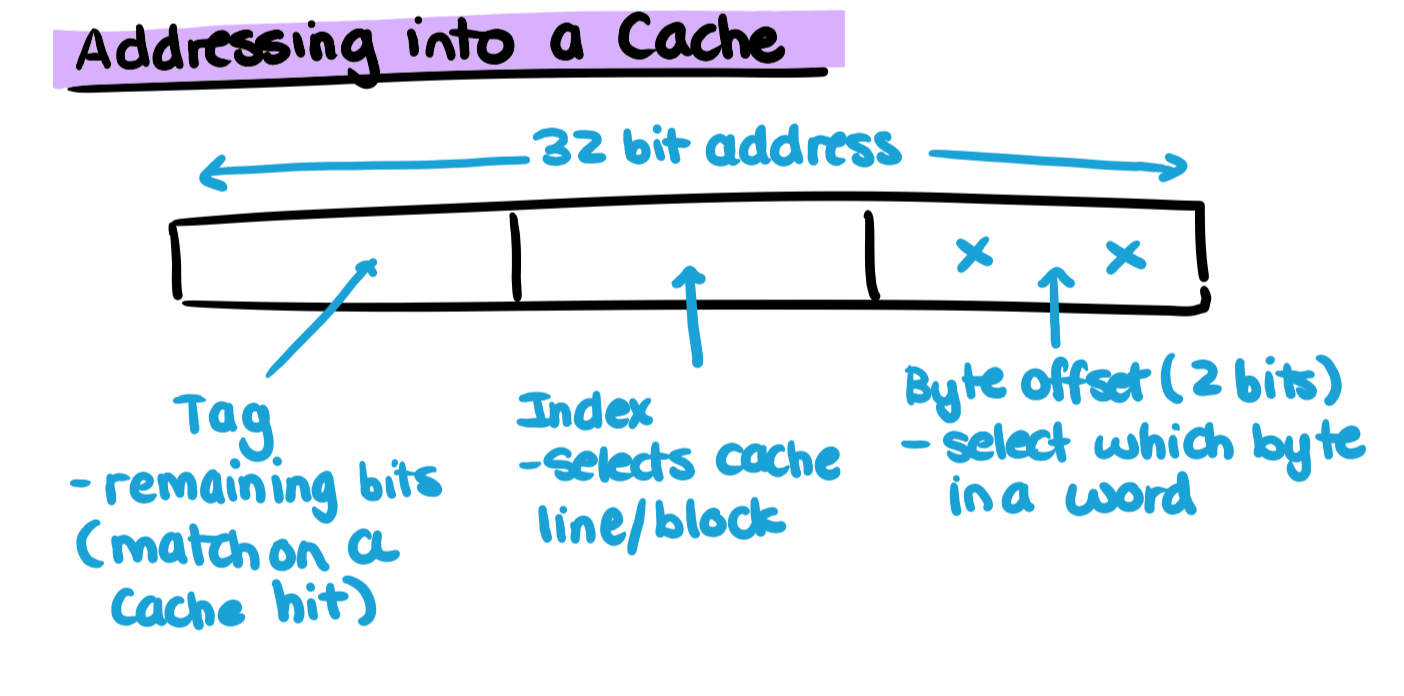 Addressing into a Cache
32 bit address
x x
Tag
- remaining bits
(match on a
cache hit)
Index
- selects cache
line/block
Byte offset (2 bits)
- select which byte
in a word